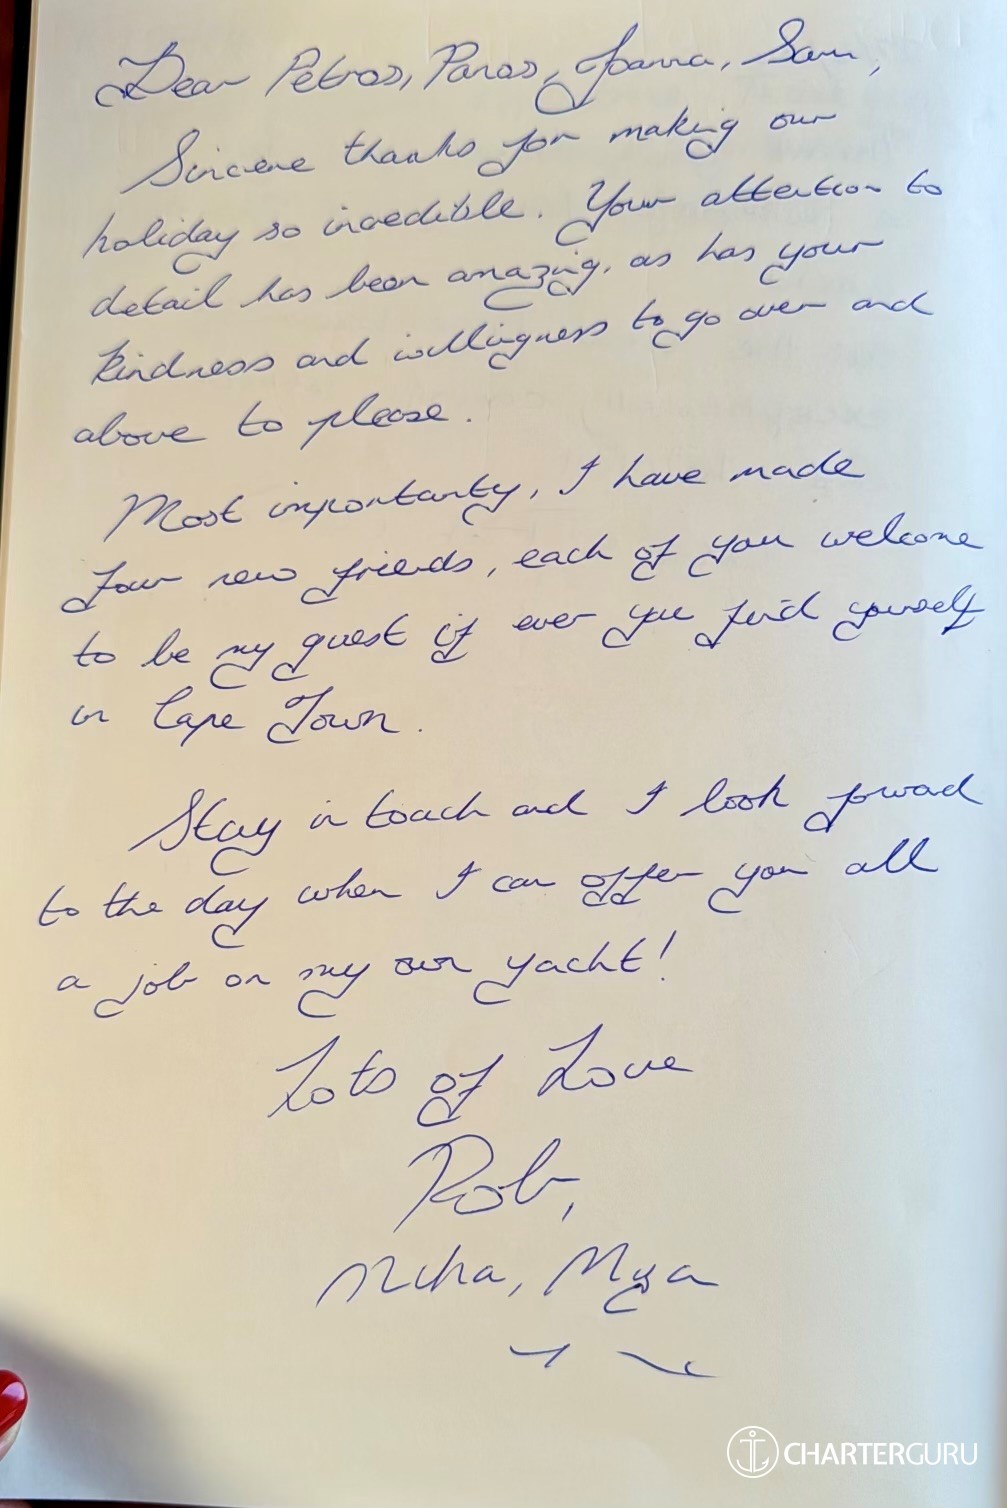 Dear Petros, Panos, Joanna, Sam,
Sincere thanks for making our
holiday so incredible. Your attention to
detail has been amazing, as has your
kindness and willingness to go over and
above to please.
Most importantly, I have made
four new friends, each of you welcome
to be my guest if ever you find yourself
in Cape Town.
Stay in touch and I look forward
to the day when I can offer you all
a job on my own yacht!
Lots of Love
Rob,
Mya
CHARTERGURU